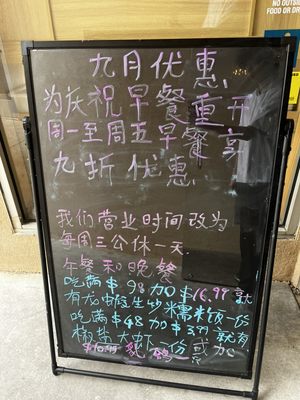 NO OUTSIDE
FOOD OR DR
九月优惠
为庆祝早餐重开
周一至周五早餐享
九折优惠
我们营业时间改为
每周三公休一天
午餐和晚餐
吃满$98加$16.99就
有龙虾生炒糯米饭一份
吃满$48加$3.99就有
椒盐大虾一份或加
$10.99